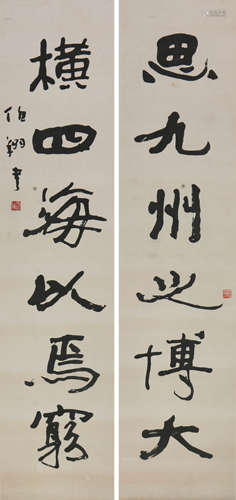 思九州之博大
橫四海以焉窮
伯翔書